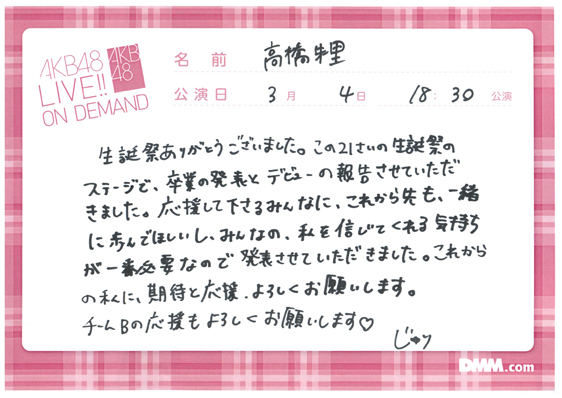 AKB48
LIVE!!
ON DEMAND
AKB
48
名前 高橋朱里
公演日 3月 4日 18:30 公演
生誕祭ありがとうございました。この21さいの生誕祭の
ステージで、卒業の発表とデビューの報告させていただ
きました。応援して下さるみんなに、これから先も、一緒
に歩んでほしいし、みんなの、私を信じてくれる気持ち
が一番必要なので発表させていただきました。これから
の私に、期待と応援、よろしくお願いします。
チームBの応援もよろしくお願いします♡
じゅり
DMM.com